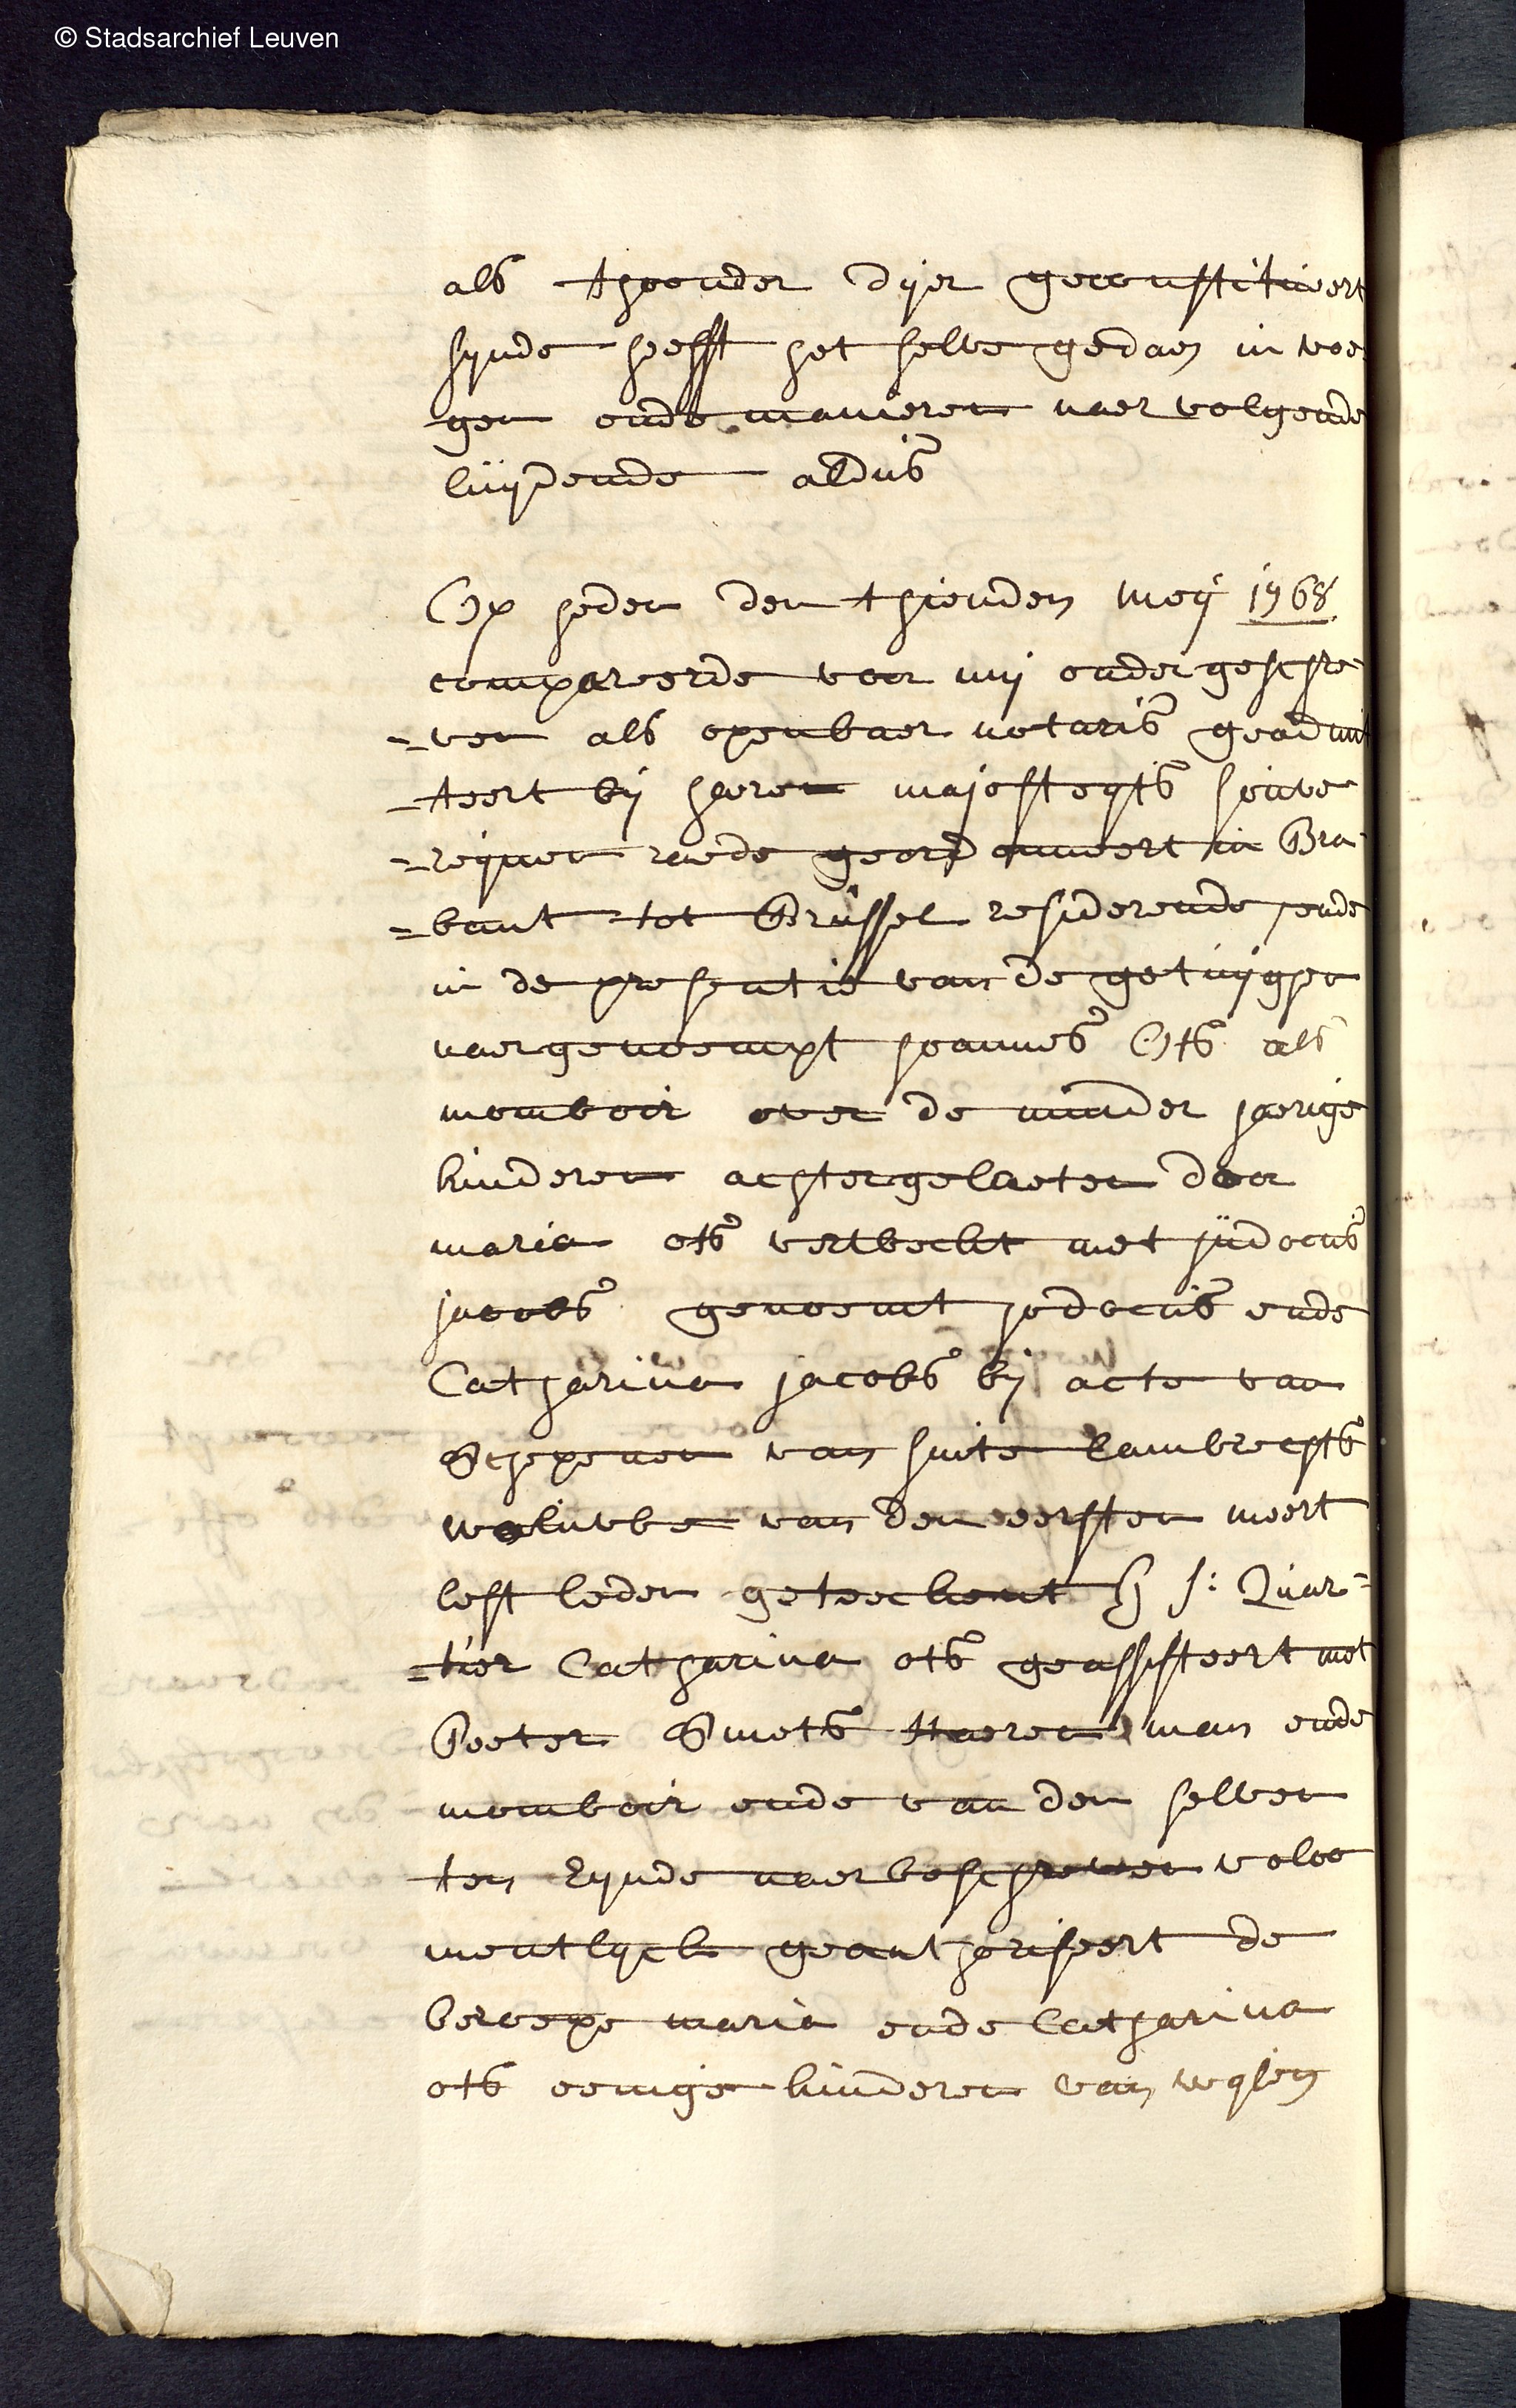 © Stadsarchief Leuven
als thoonder dijer geconstitueert
sijnde heefft het selve gedaen in voe
gen ende manieren naervolgende
luijdende aldus
Op heden den thienden meij 1768
compareerde voor mij ondergeschre-
-ven als openbaer notaris geadmit
-teert bij haere majesteijts souve
-reijnen raede geordonneert in Bra-
-bant tot Brussel residerende ende
in de presentie van de getuijghen
naergenoempt joannes Ots als
momboir over de minder jaerige
kinderen achtergelaeten door
maria ots verweckt met judocus
jacobs genoemt jodocus ende
Catharina jacobs bij acte van
Schepenen van sinte Lambrechts
woluwe van den eersten meert
lest leden geteeckent H J: Quar-
-tier Catharina ots geassisteert met
Peeter Smets Haeren man ende
momboir ende van den selven
ten Eynde naerbeschreven voloo
mentlyck geauthoriseert de
beroepe maria ende Catharina
ots eenige kinderen van wylen